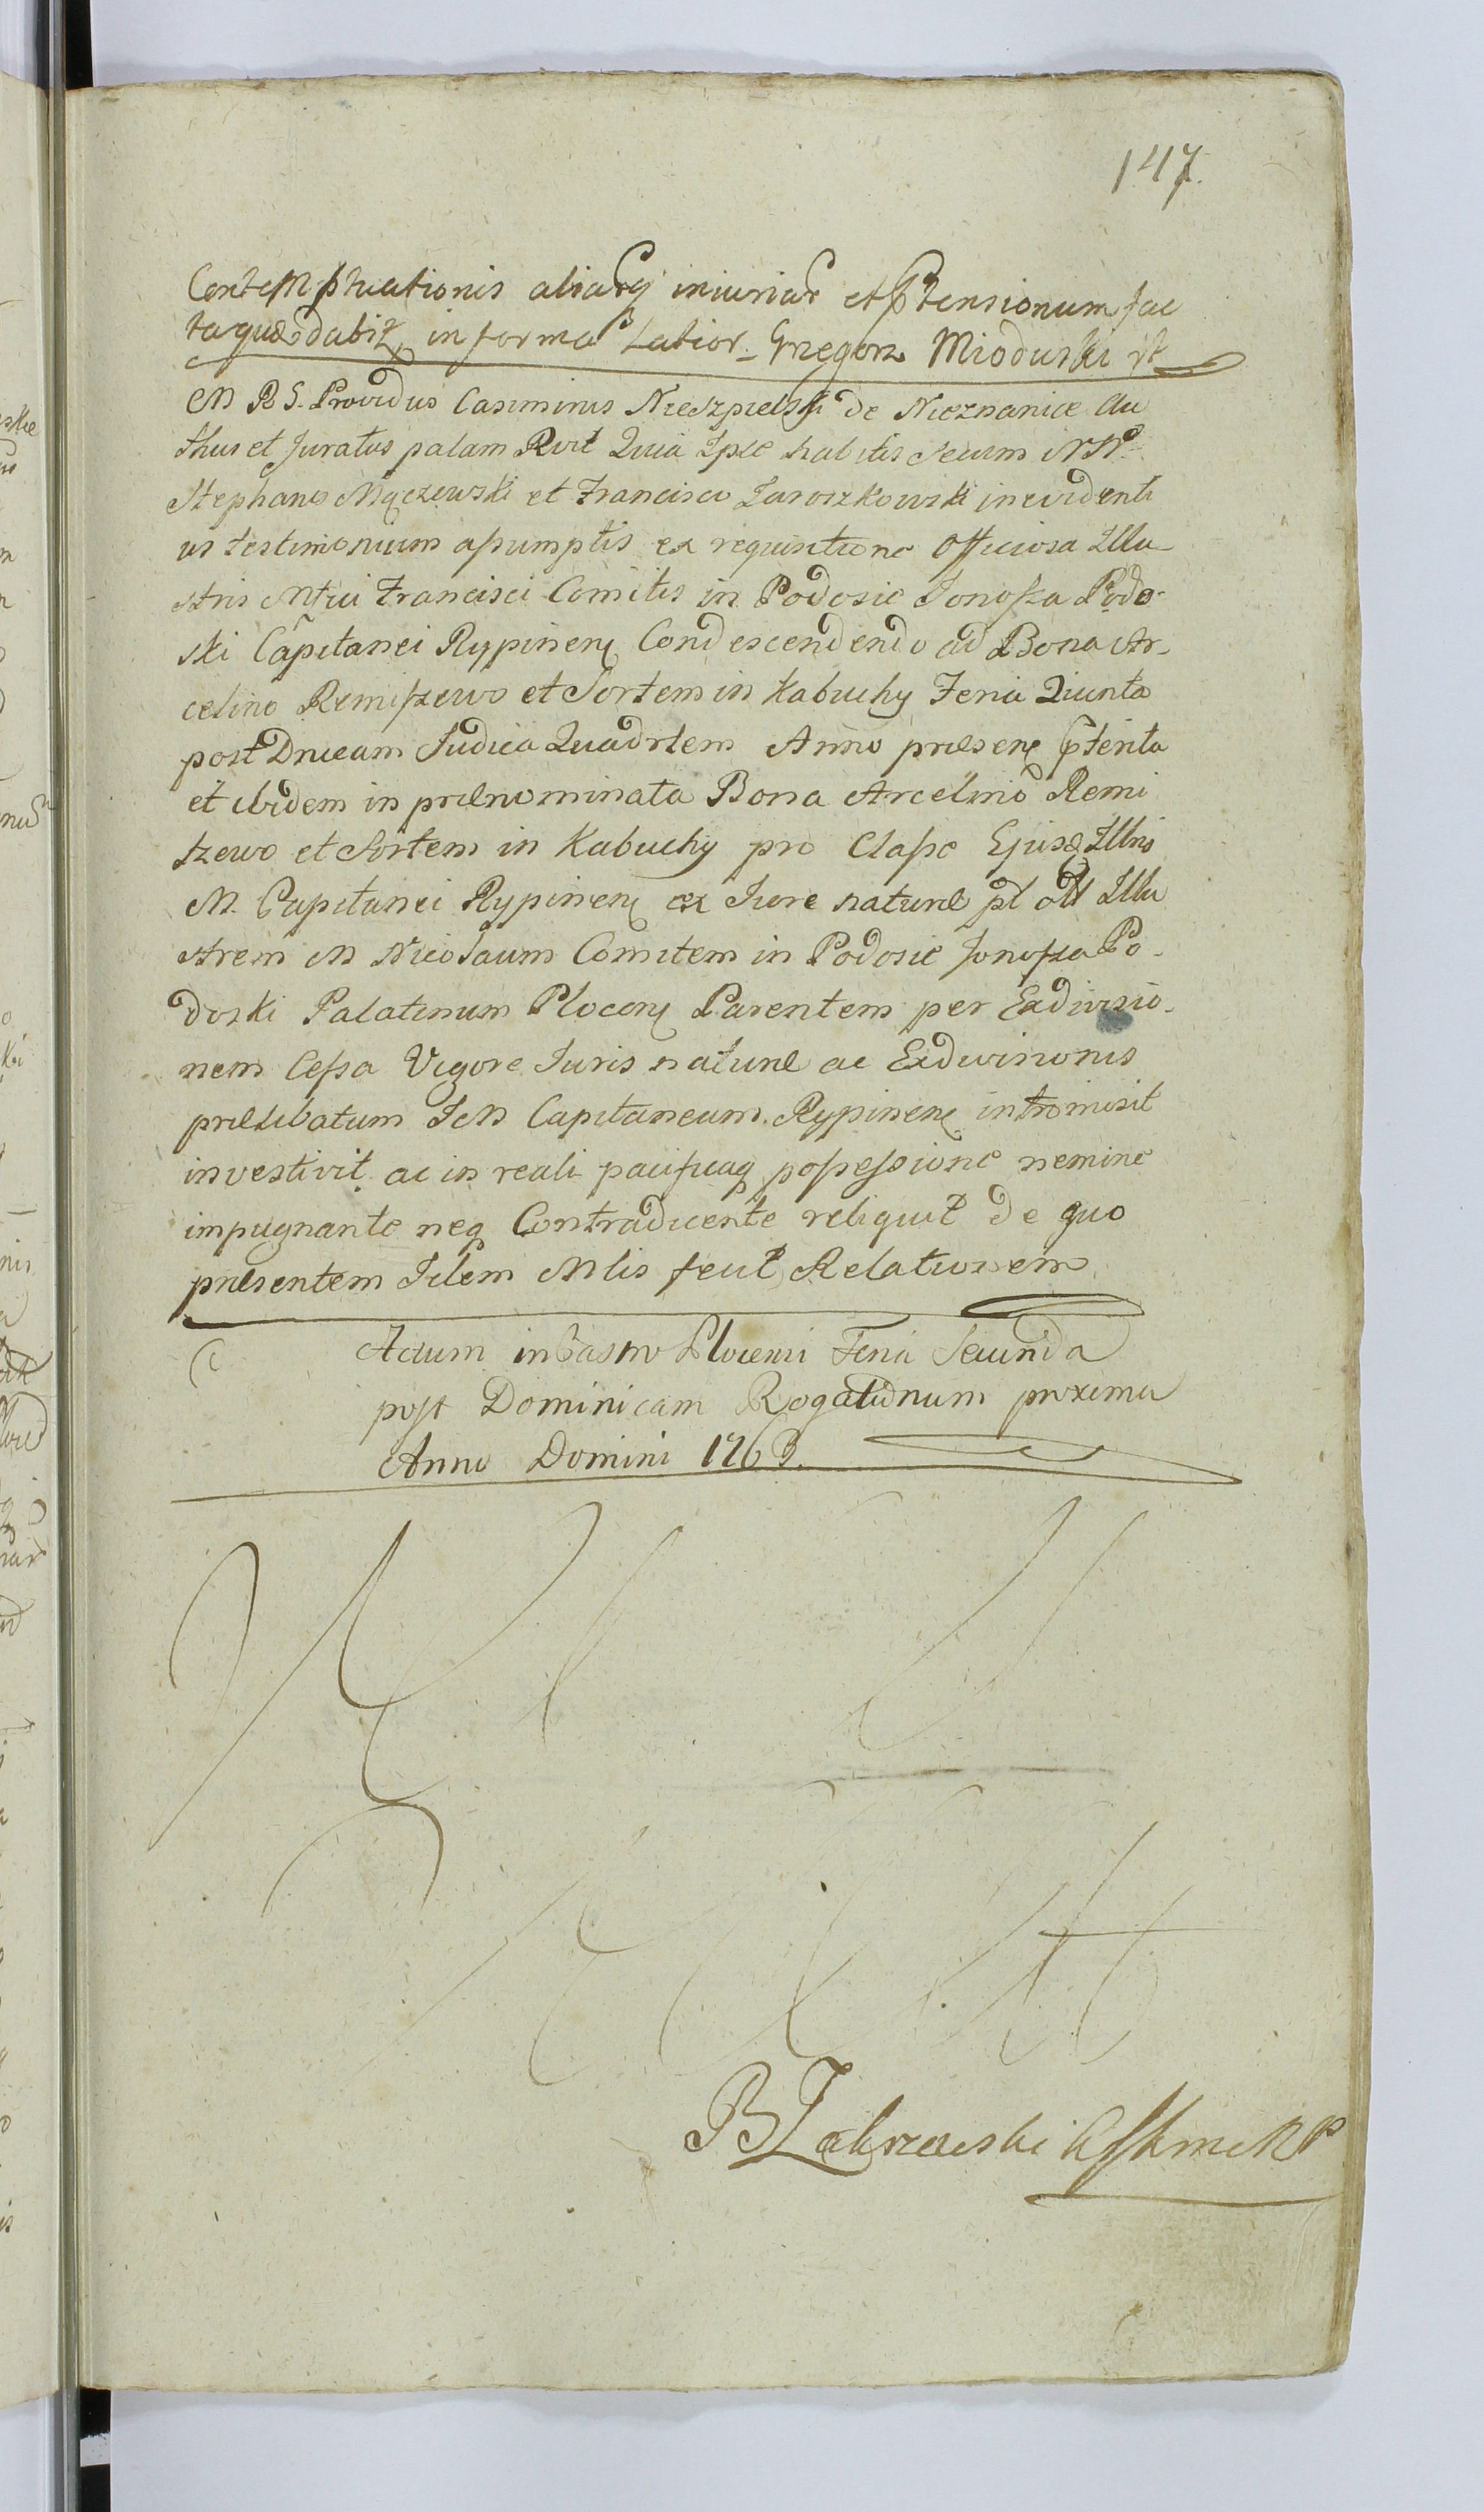 147.
Contemptuationis aliarq iniuriar et ptensionum fac
ta quae dabit in forma Latior. Grzegorz Mioduski
M R S. Providus Casimirus Nieszpielski de Nieznanice Au
thus et Juratus palam Rvit Quia Ipse habitis secum NN
Stephano Mączewski et Francisco Jaroszkowski inevidenti
us testimonium assumptis ex requisitione officiosa Illu
stris Mfici Francisci Comitis in Podosie Junosza Podo
ski Capitanei Rypinen Condescendendo ad Bona Ar_
celino Remiszewo et Sortem in Kabuchy Feria Quinta
post Dnicam Judica Quadrlem Anno praesen ptenta
et ibidem in praenominata Bona Arcelino Remi
szewo et Sortem in Kabuchy pro Classe Ejusd Illris
M. Capitanei Rypinen ex Jure naturae pt olt Illu
strem M Nicolaum Comitem in Podosie Junosza Po_
doski Palatinum Plocen Parentem per Exdivisio_
nem Cessa Vigore Juris naturae ac Exdivisionis
praelibatum IM Capitaneum Rypinen intromisit
investivit ac in reali pacificaq possessione nemine
impugnante neq Contradicente reliquit de quo
praesentem Idem Mlis fecit Relationem
Actum in Castro Plocensi Feria Secunda
post Dominicam Rogationum proxima
Anno Domini 1763.
B Zakrzewski